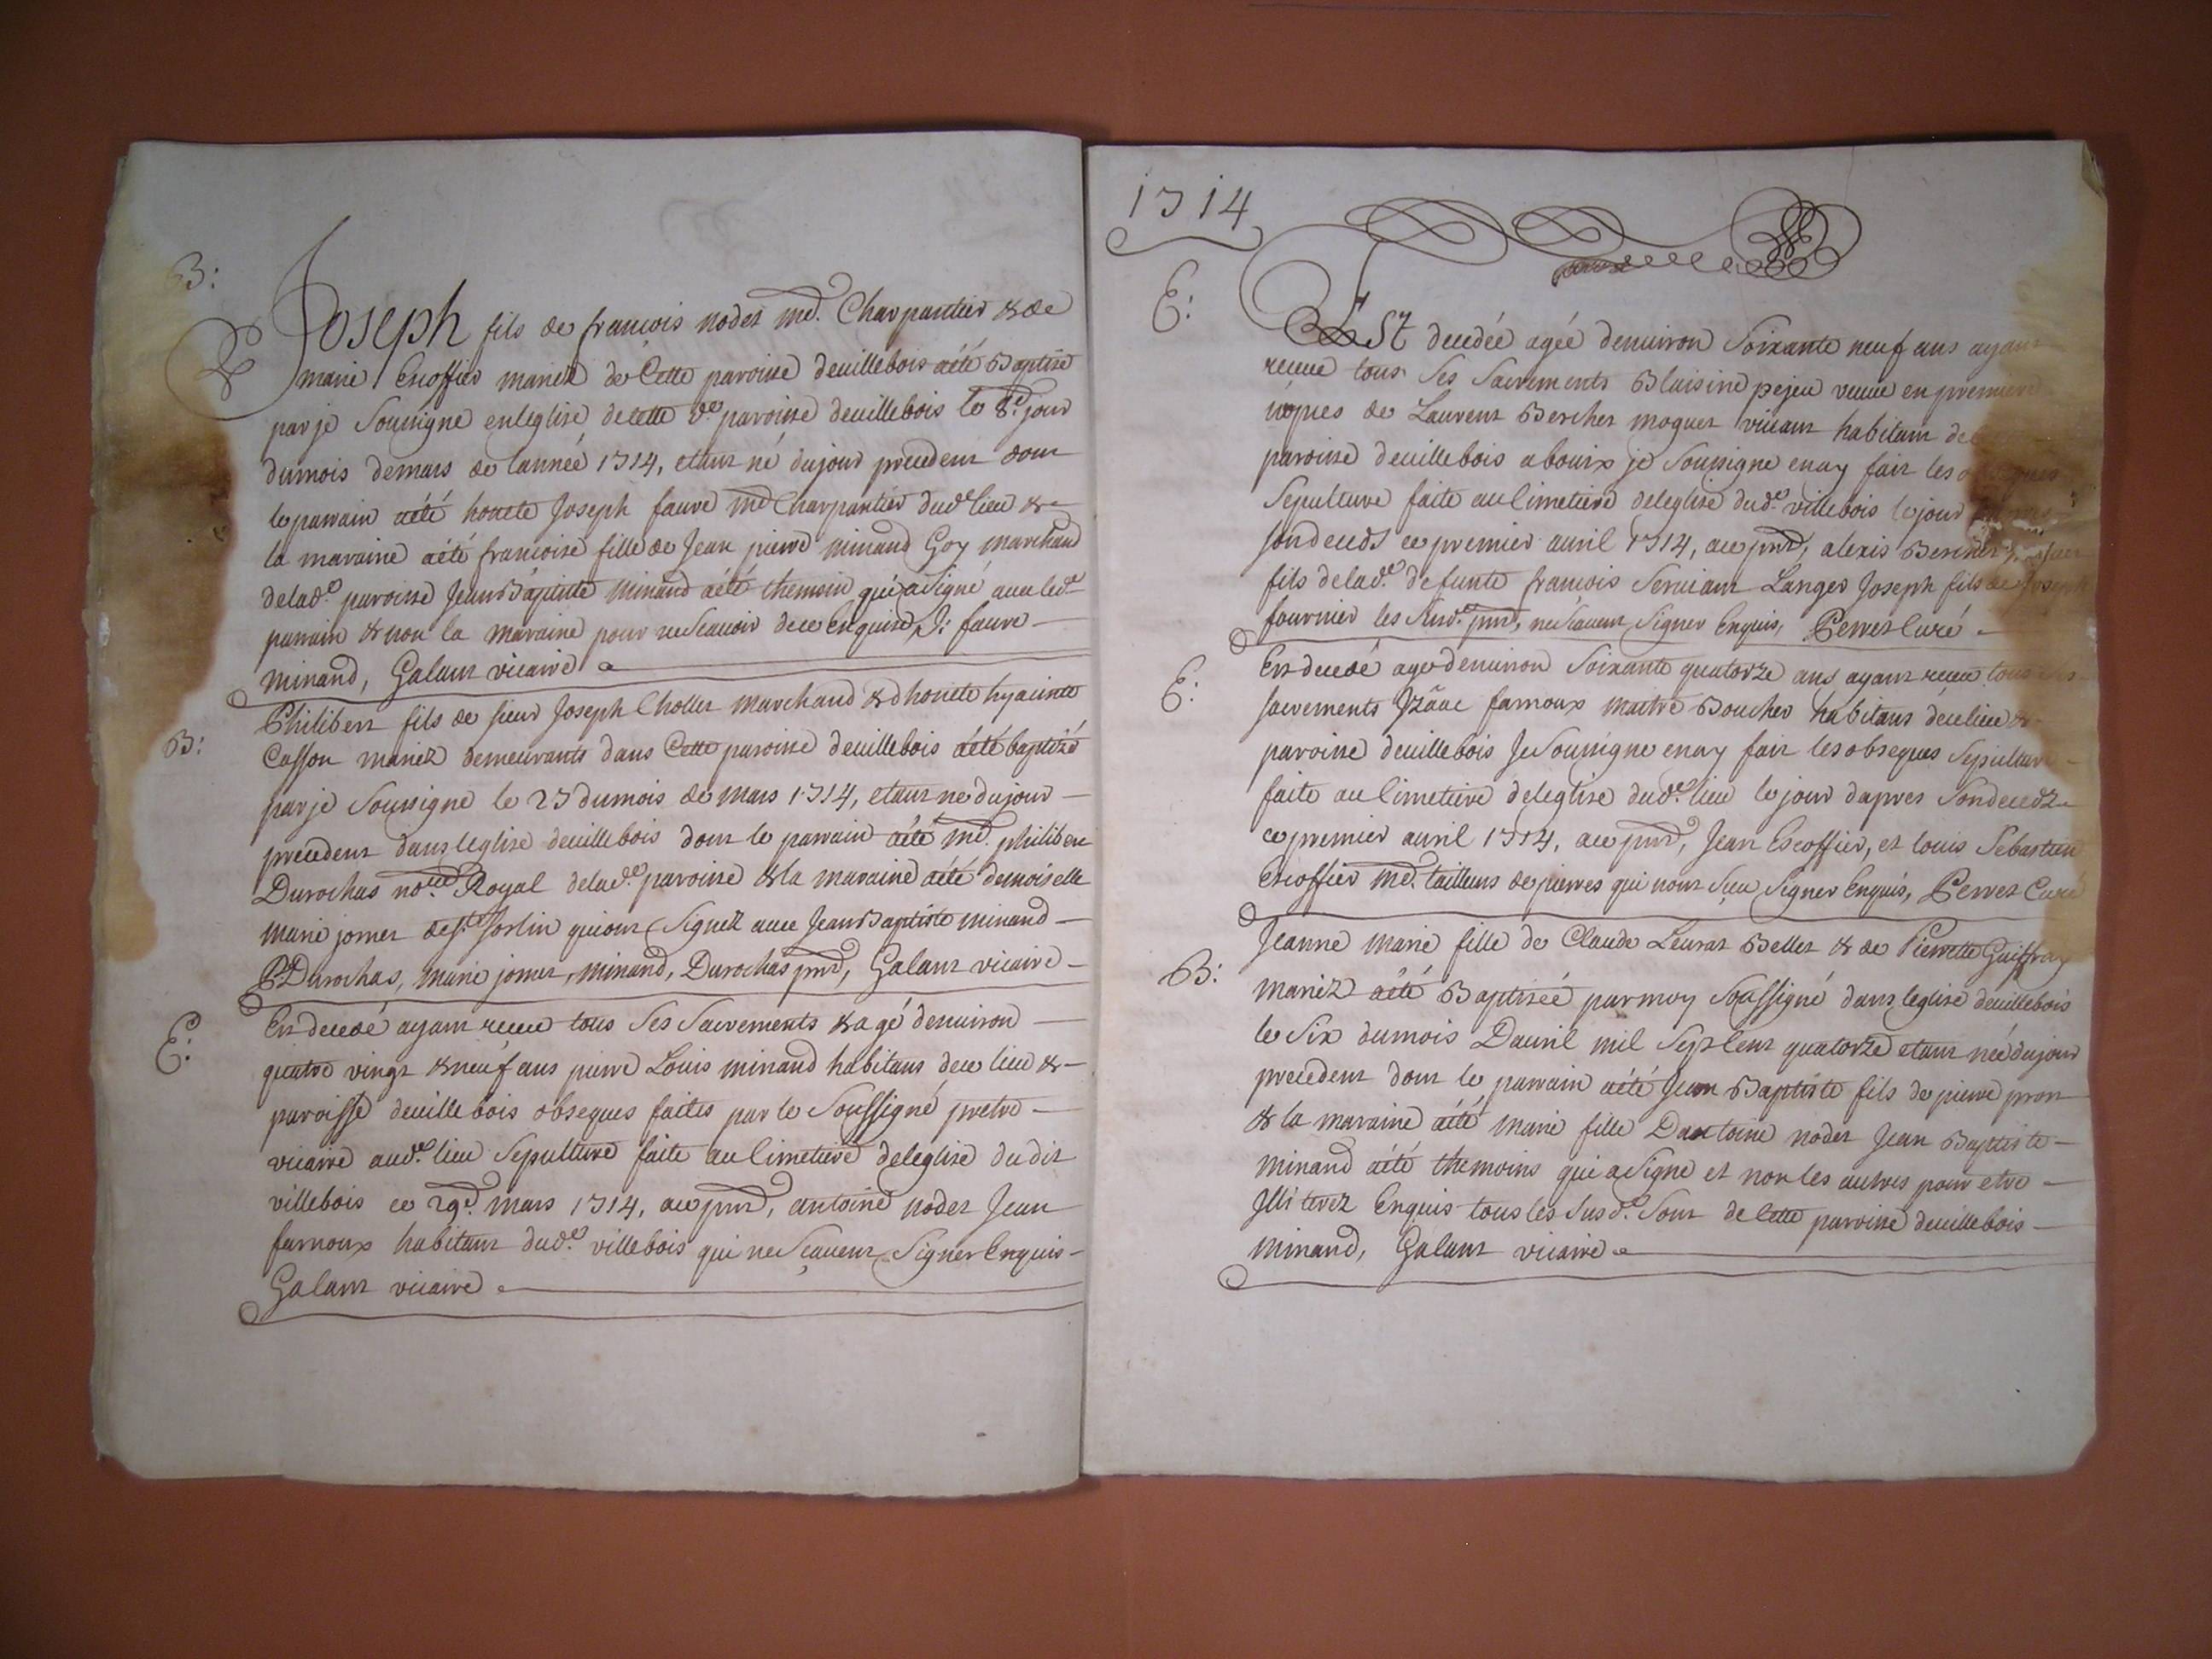 B:
Joseph fils de francois nodet md. Charpantier & de
marie Escoffier mariez de Cette paroisse deuillebois aété Baptisé
par je Soussigne enleglise decette de. paroisse deuillebois le 8e. jour
dumois demars de lannée 1714, etant né dujour precedent dont
le parrain aété honete Joseph faure md Charpantier dude lieu &
la maraine aété francoise fille de Jean pierre minand Goy marchand
delade. paroisse Jean Baptiste minand aété themoin qui asigné auec lede
parrain & non la maraine pour ne Scauoir de ce Enquise, J: faure
minand, Galant vicaire
B:
Philibert fils de sieur Joseph Chollet marchand & dhonete hyacinte
Casson mariez demeurants dans Cette paroisse deuillebois aété baptisé
par je Soussigne le 27 dumois de mars 1714, etant né dujour
precedent dans leglise deuillebois dont le parrain aété me. philibert
Durochas nore Royal delade. paroisse & la maraine aété demoiselle
marie jomer de st. Sorlin quiont Signez auec Jean Baptiste minand
P Durochas, marie jomer, minand, Durochas pnt, Galant vicaire
E:
Est decedé ayant receu tous Ses Sacrements & agé denuiron
quatre vingt & neuf ans pierre Louis minand habitant dece lieu &
paroisse deuillebois obseques faites par le Soussigné pretre
vicaire aude. lieu Sepulture faite au Cimetiere deleglise dudit
villebois ce 29e. mars 1714, acepnt, antoine nodet Jean
farnoux habitant dude. villebois qui ne Scauent Signer Enquis
Galant vicaire
1714
E:
Est decedée agée denuiron Soixante neuf ans ayant
receue tous Ses Sacrements Blaisine pejeu veuue en premiere
nopces de Laurent Bercher moguet viuant habitant de
paroisse deuillebois abouix je Soussigne enay fait les
Sepulture faite au Cimetiere deleglise dude. villebois le jour
son deceds ce premier auril 1714, ace pnt, alexis Bercher
fils delade. defunte francois Seruant Langer Joseph fils de Joseph
fournier les Susd. pnt, ne Scauent Signer Enquis, Perret Curé
E:
Est decedé agé denuiron Soixante quatorze ans ayant receu tous
sacrements Jzâac farnoux maitre Boucher habitant dece lieu &
paroisse deuillebois Je Soussigne enay fait les obseques Sepulture
faite au Cimetiere deleglise dude. lieu le jour dapres Son decedz
ce premier auril 1714, ace pnt, Jean Escoffier, et louis Sebastien
Escoffier md. tailleurs de pierres qui nont Sceu Signer Enquis, Perret Curé
B:
Jeanne marie fille de Claude Leurat Bellet & de Pierrette Guiffray
mariez aété Baptisée parmoy Soussigné dans leglise deuillebois
le Six dumois Dauril mil Sept Cent quatorze etant née dujour
precedent dont le parrain aété Jean Baptiste fils de pierre pron
& la maraine aété marie fille Dantoine nodet Jean Baptiste
minand aété themoins qui a Signe et non les autres pour etre
Jlliterez Enquis tous les Susd. Sont de Cette paroisse deuillebois
minand, Galant vicaire